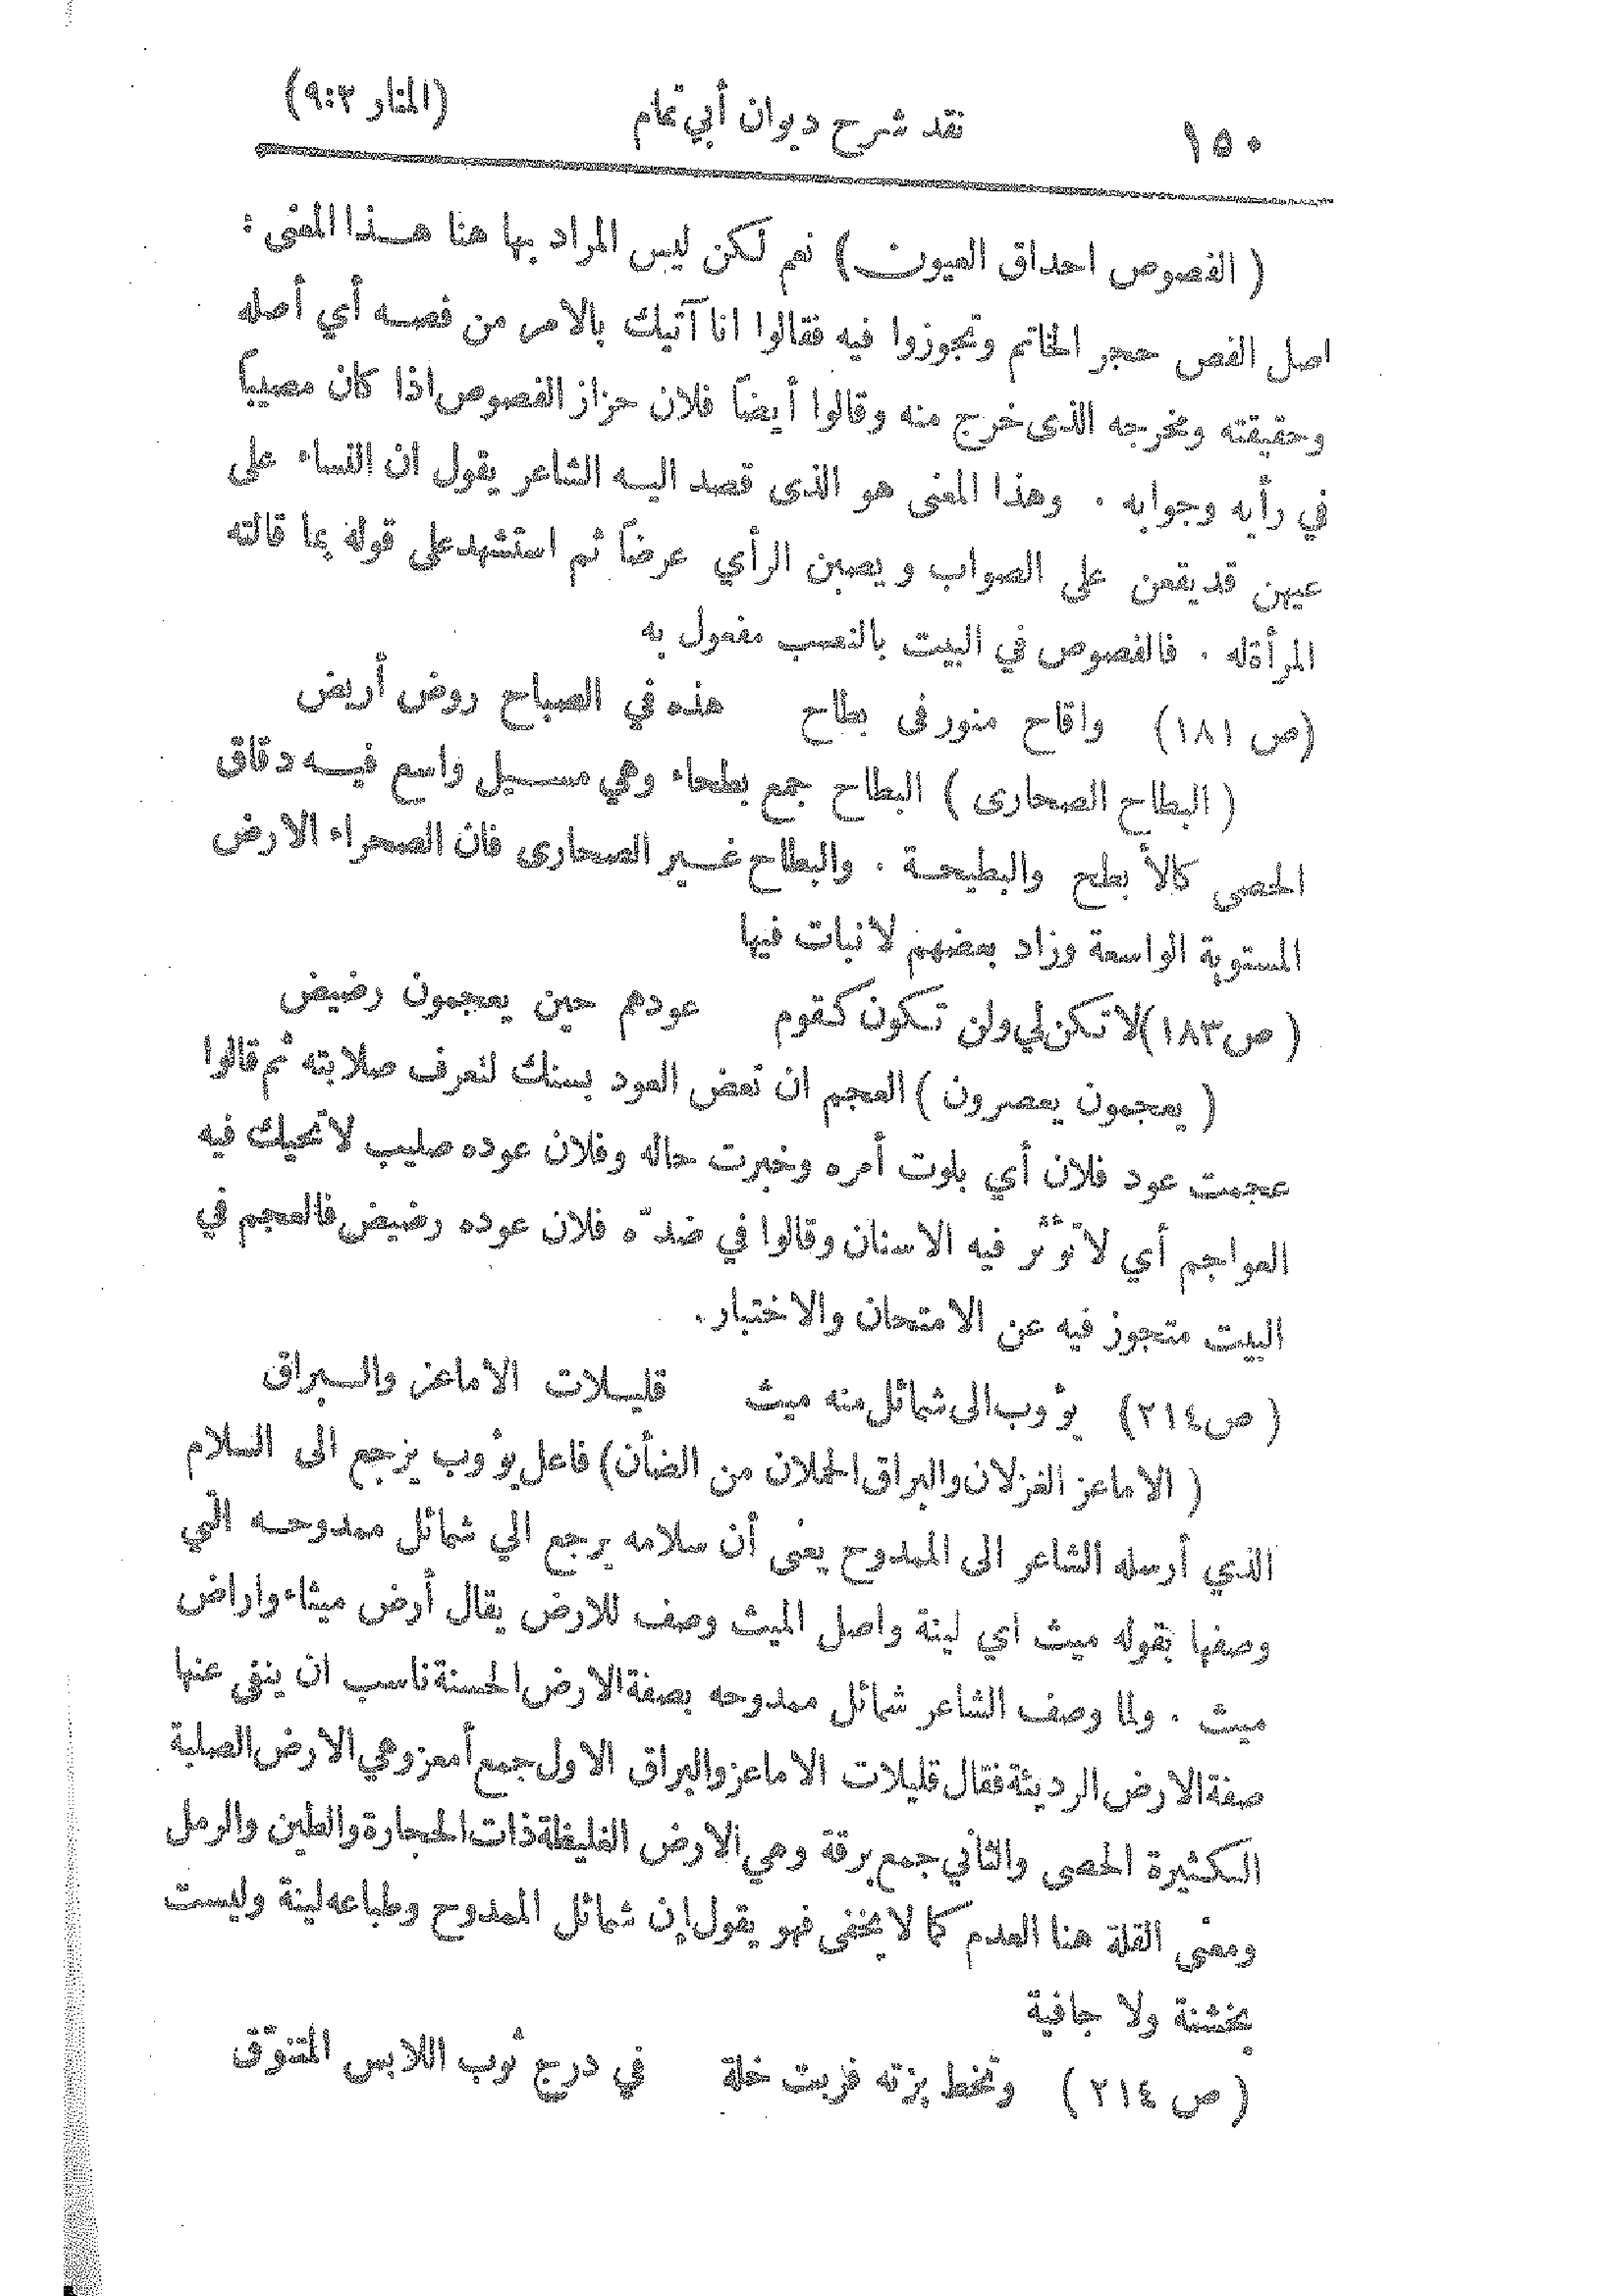 ١٥٠ نقد شرح ديوان أبي تمام (المنار ٩:٣)
( الفصوص احداق العيون ) نعم لكن ليس المراد بها هنا هذا المعنى :
اصل الفص حجر الخاتم وتجوزوا فيه فقالوا انا آتيك بالامر من فصه أي أصله
وحقيقته ومخرجه الذى خرج منه وقالوا أيضاً فلان حزاز الفصوص اذا كان مصيباً
في رأيه وجوابه . وهذا المعنى هو الذى قصد اليه الشاعر يقول ان النساء على
عيهن قد يقعن على الصواب ويصبن الرأي عرضاً ثم استشهد على قوله بما قالته
المرأة له . فالفصوص في البيت بالنصب مفعول به
(ص ١٨١) واقاح منور فى بطاح هذه في الصباح روض أريض
( البطاح الصحارى ) البطاح جمع بطحاء وهي مسيل واسع فيه دقاق
الحصى كالأ بطح والبطيحة . والبطاح غير الصحارى فان الصحراء الارض
المستوية الواسعة وزاد بعضهم لا نبات فيها
( ص ١٨٣) لا تكن لي ولن تكون كقوم عودهم حين يعجمون رضيض
( يعجمون يعصرون ) العجم ان تعض العود بسنك لتعرف صلابته ثم قالوا
عجمت عود فلان أي بلوت أمره وخبرت حاله وفلان عوده صليب لا تحيك فيه
العواجم أي لا تؤثر فيه الاسنان وقالوا في ضدّه فلان عوده رضيض فالعجم في
البيت متجوز فيه عن الامتحان والاختبار.
( ص ٢١٤) يؤوب الى شمائل منه ميث قليلات الاماعز والبراق
( الاماعز الغزلان والبراق الحملان من الضأن) فاعل يؤوب يرجع الى السلام
الذي أرسله الشاعر الى الممدوح يعنى أن سلامه يرجع الي شمائل ممدوحه التي
وصفها بقوله ميث اي لينة واصل الميث وصف للارض يقال أرض ميثاء واراض
ميث . ولما وصف الشاعر شمائل ممدوحه بصفة الارض الحسنة ناسب ان ينفي عنها
صفة الارض الرديئة فقال قليلات الاماعز والبراق الاول جمع أمعز وهي الارض الصلبة
الكثيرة الحصى والثاني جمع برقة وهي الارض الغليظة ذات الحجارة والطين والرمل
ومعنى القلة هنا العدم كما لا يخفى فهو يقول إن شمائل الممدوح وطباعه لينة وليست
بخشنة ولا جافية
( ص ٢١٤ ) وتخط بزته فربت خلة في درج ثوب اللابس المتنوّق